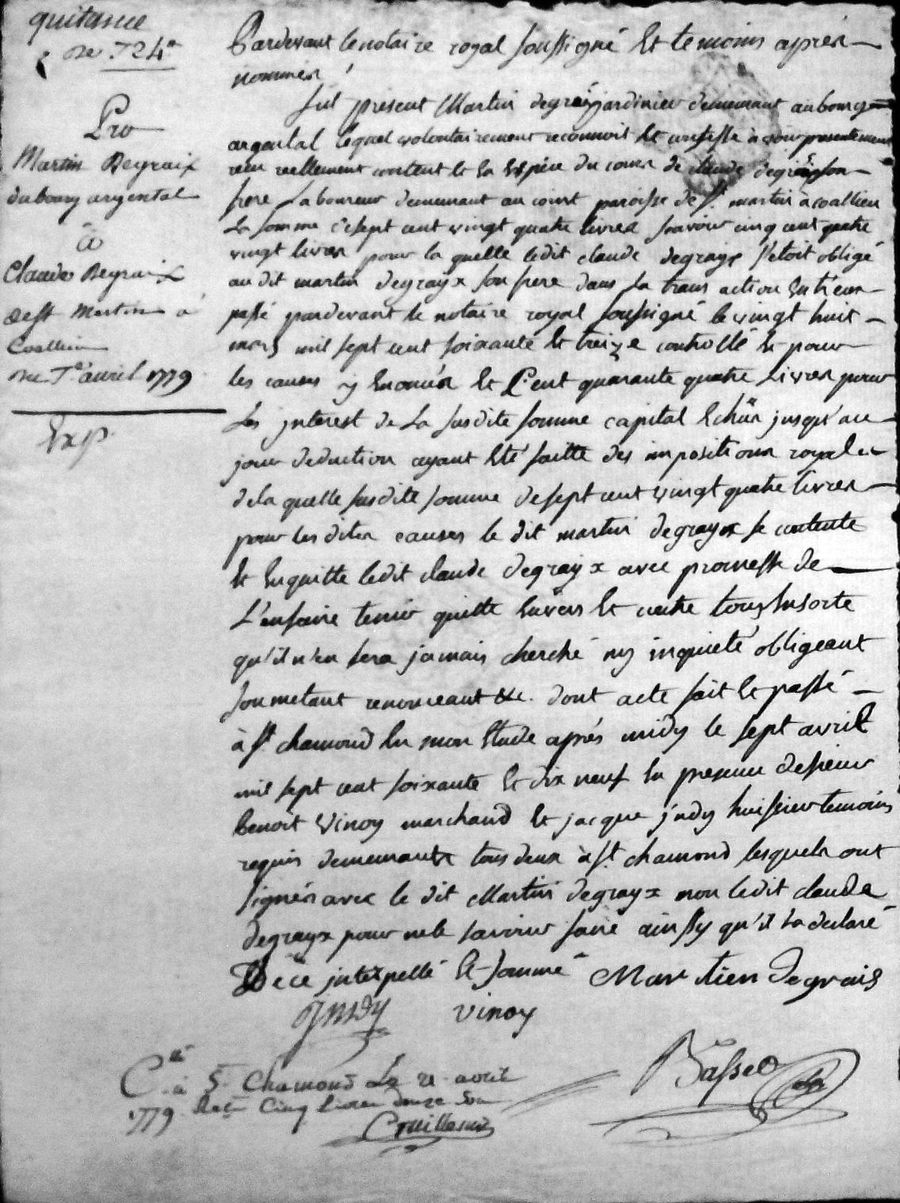 quitance
de 724#
Pro
Martin Degraix
du bourg argental
à
Claude Degraix
de st Martin à
Coallieu
du 7e avril 1779
Exp.
Pardevant le notaire royal soussigné et temoins après
nommés
fut présent Martin degraix jardinier demeurant au bourg
argental lequel volontairement reconnoit et confesse avoir presentement
reçu reellement content et en espèce du cours de claude degraix son
frere laboureur demeurant au court paroisse de st martin à coallieu
la somme de sept cent vingt quatre livres savoir cinq cent quatre
vingt livres pour la quelle ledit claude degrayx s'etoit obligé
au dit martin degrayx son frere dans la transaction entr'eux
passé pardevant le notaire royal soussigné le vingt huit
mars mil sept cent soixante et treize controllé et pour
les causes y enoncés et cent quarante quatre livres pour
les interest de la susdite somme capital echûs jusqu'au
jour deduction ayant eté faitte des impositions royales
de la quelle susdite somme de sept cent vingt quatre livres
pour les dites causes le dit martin degrayx se contente
et en quitte ledit claude degrayx avec promesse de
l'en faire tenir quitte envers et contre tous en sorte
qu'il n'en sera jamais cherché ny inquieté obligeant
soumetant renonceant &c. dont acte fait et passé
à st chamond en mon etude après midy le sept avril
mil sept cent soixante et dix neuf en presence de sieur
benoit vinoy marchand et jacque jndy huissier temoins
requis demeurants tous deux à st. chamond lesquels ont
signés avec le dit Martin degrayx non ledit claude
degrayx pour ne le savoir faire ainssy qu'il l'a declaré
de ce interpellé et sommé Martien degrais
Jndy vinoy
Basset
Clé à St Chamond le 21 avril
1779 Reçu Cinq livres douze sou